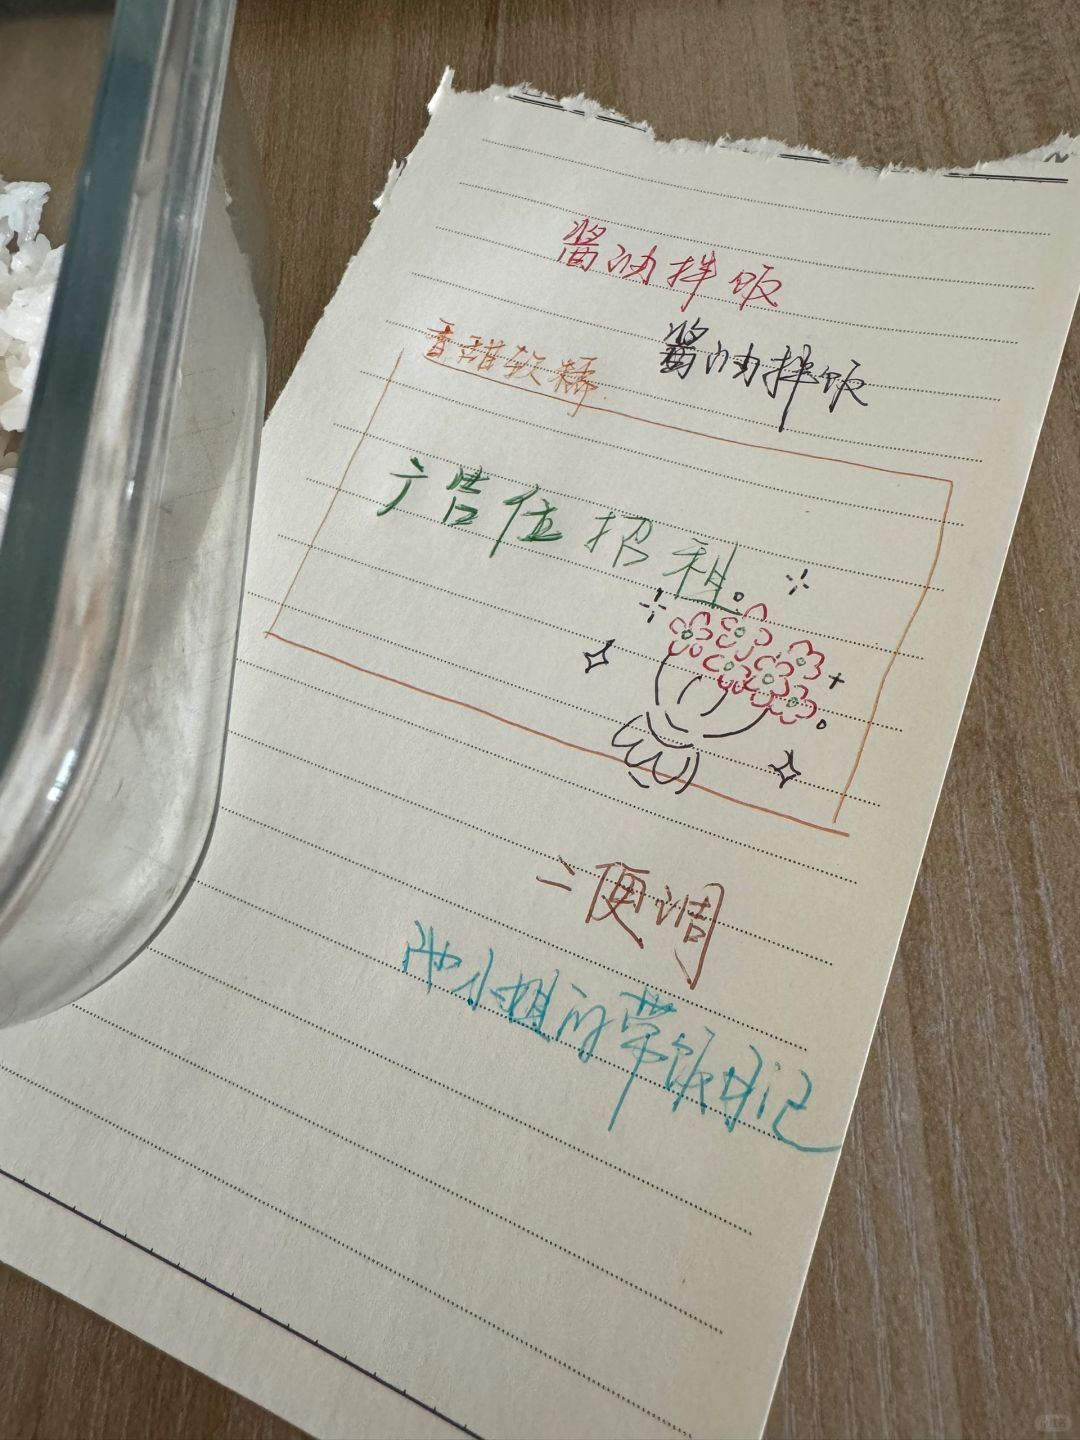 酱油拌饭
酱油拌饭
香甜软糯
广告位招租
二便调
池小姐的带饭日记